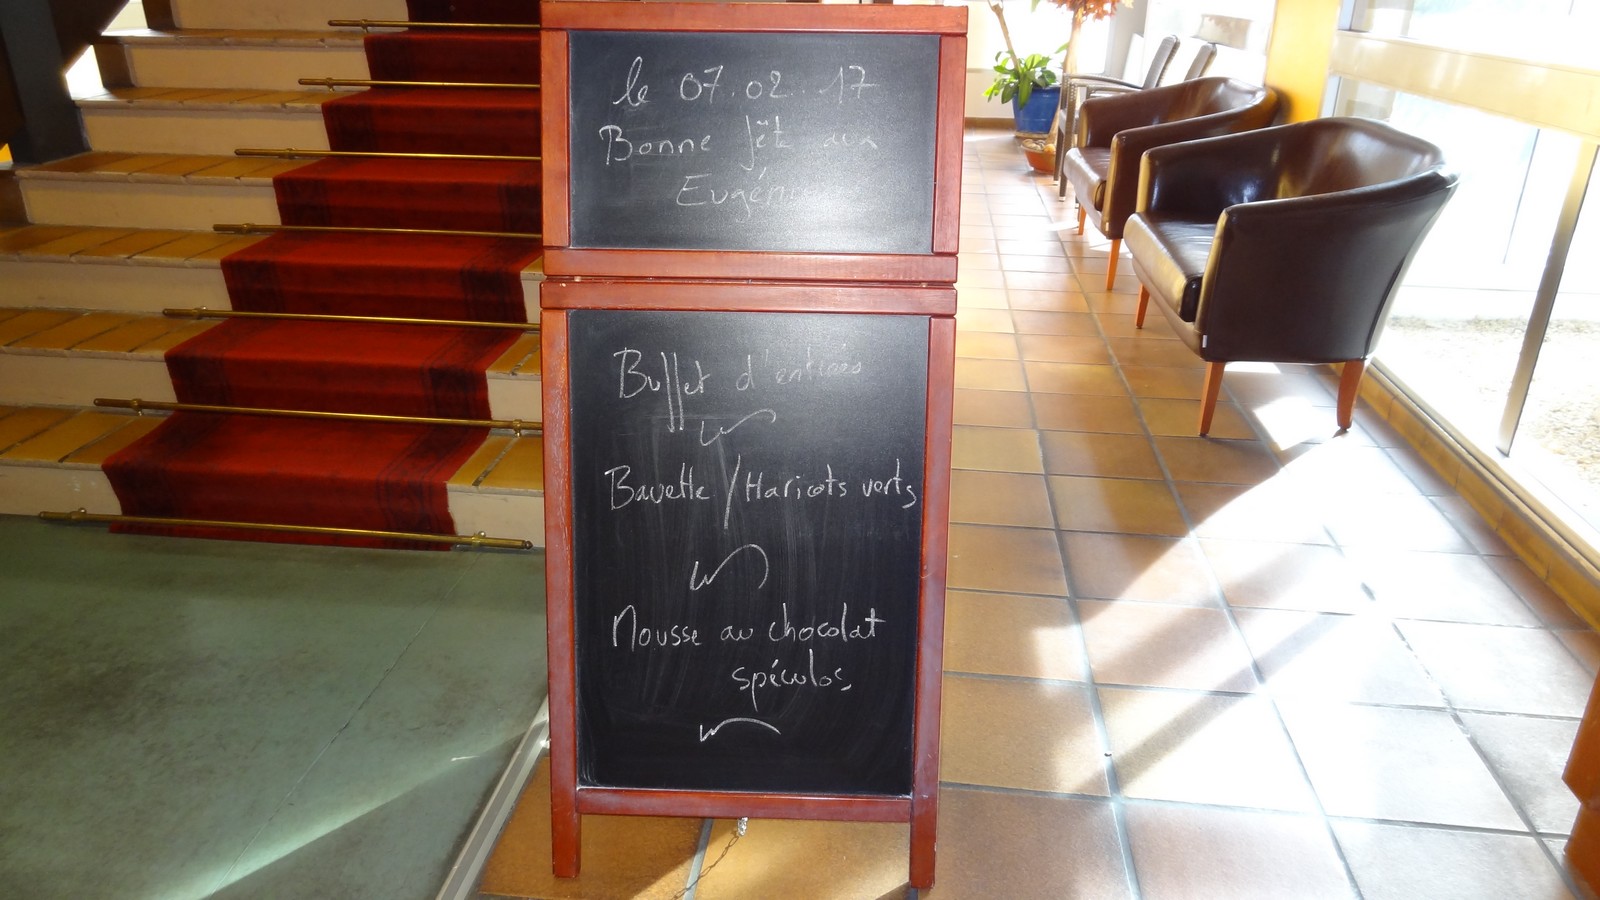 le 07.02.17
Bonne fête aux
Eugénie
Buffet d'entrées
Bavette / Haricots verts
Mousse au chocolat
spéculos